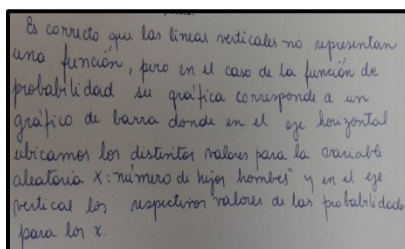 Es correcto que las líneas verticales no representan
una función, pero en el caso de la función de
probabilidad su gráfica corresponde a un
gráfico de barra donde en el eje horizontal
ubicamos los distintos valores para la variable
aleatoria X: número de hijos hombres" y en el eje
vertical los respectivos valores de las probabilidades
para los x.